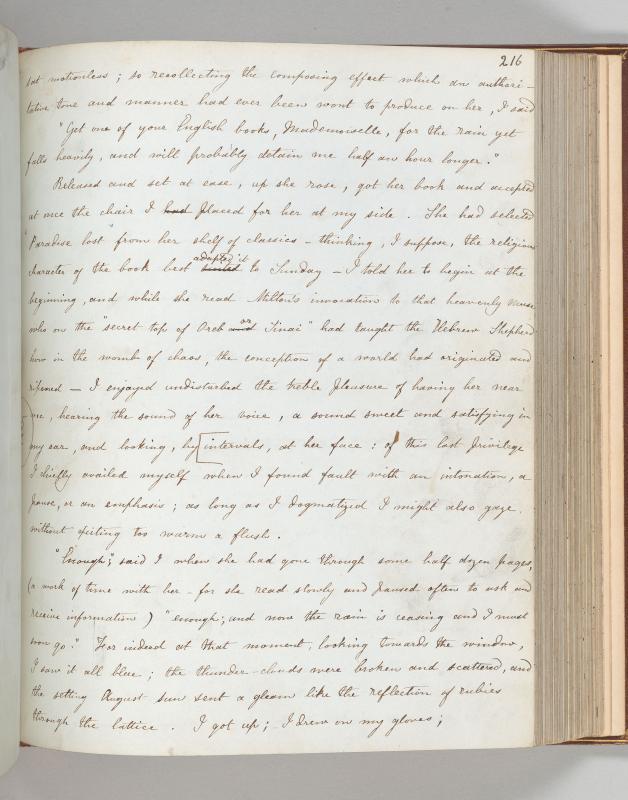 216
sat motionless; so recollecting the composing effect which an authori-
tative tone and manner had ever been wont to produce on her, I said
"Get one of your English books, Mademoiselle, for the rain yet
falls heavily, and will probably detain me half an hour longer."
Released and set at ease, up she rose, got her book and accepted
at once the chair I had placed for her at my side. She had selected
"Paradise lost" from her shelf of classics - thinking, I suppose, the religious
adapted it
character of the book best suited to Sunday - I told her to begin at the
beginning, and while she read Milton's invocation to that heavenly muse
or
who on the "secret top of Oreb and Sinai" had taught the Hebrew Shepherd
how in the womb of chaos, the conception of a world had originated and
ripened - I enjoyed undisturbed the treble pleasure of having her near
me, hearing the sound of her voice, a sound sweet and satisfying in
my ear, and looking, by intervals, at her face: of this last privilege
I chiefly availed myself when I found fault with an intonation, a
pause, or an emphasis; as long as I dogmatized I might also gaze
without exciting too warm a flush.
"Enough"; said I when she had gone through some half dozen pages,
(a work of time with her - for she read slowly and paused often to ask and
receive information) "enough; and now the rain is ceasing and I must
soon go." For indeed at that moment, looking towards the window,
I saw it all blue; the thunder-clouds were broken and scattered, and
the setting August sun sent a gleam like the reflection of rubies
through the lattice. I got up; I drew on my gloves;